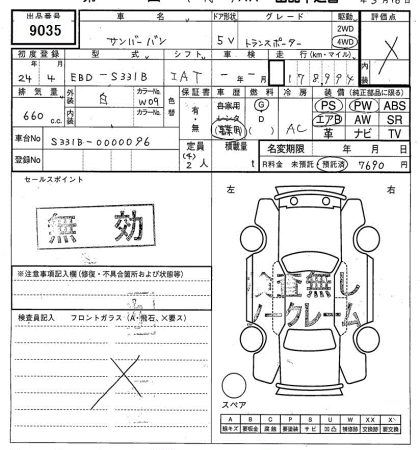 出品番号 車名 ドア形状 グレード 駆動 評価点
9035 サンバーバン 5V トランスポーター 2WD 4WD X
初度登録 型式 シフト 車検 走行(km・マイル) 内装
24年4月 EBD-S331B IAT -年-月 178,994
排気量 外装 色 カラーNo. 色替 保証書 車歴 燃料 冷房 装備(純正部品に限る)
660c.c. 白 W09 有・無 自家用 G PS PW ABS
内装 カラーNo. レンタ D AC エアB AW SR
事業用 ( ) 革 ナビ TV
車台No S331B-0000096 定員 積載量 名変期限 年 月 日
登録No (キ) 2人 t R料金 未預託・預託済 7690 円
セールスポイント 左 右
無効
※注意事項記入欄(修復・不具合箇所および状態等)
検査無し
ノークレーム
検査員記入 フロントガラス(A・飛石、X要ス)
X
スペア
A B C P S U W XX X
線キズ 要板金 腐蝕 要塗装 サビ 凹凸 補修跡 交換跡 要交換